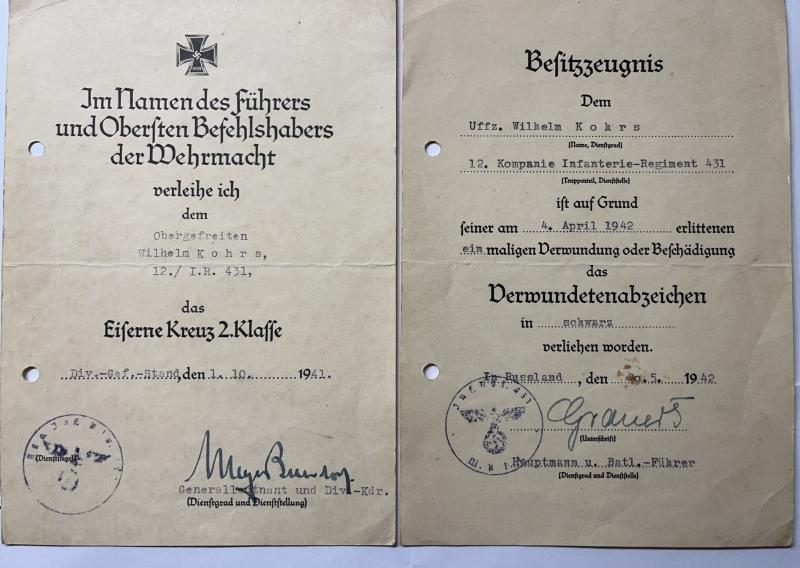 Im Namen des Führers
und Obersten Befehlshabers
der Wehrmacht
verleihe ich
dem
Obergefreiten
Wilhelm K o h r s,
12./ I.R. 431,
das
Eiserne Kreuz 2. Klasse
Div.-Gef.-Stand, den 1. 10. 1941.
(Dienstsiegel)
Generalleutnant und Div.-Kdr.
(Dienstgrad und Dienststellung)
Besitzzeugnis
Dem
Uffz. Wilhelm K o h r s
(Name, Dienstgrad)
12. Kompanie Infanterie-Regiment 431
(Truppenteil, Dienststelle)
ist auf Grund
seiner am 4. April 1942 erlittenen
ein maligen Verwundung oder Beschädigung
das
Verwundetenabzeichen
in schwarz
verliehen worden.
In Russland, den 5. 1942
(Unterschrift)
Hauptmann u. Batl.-Führer
(Dienstgrad und Dienststelle)